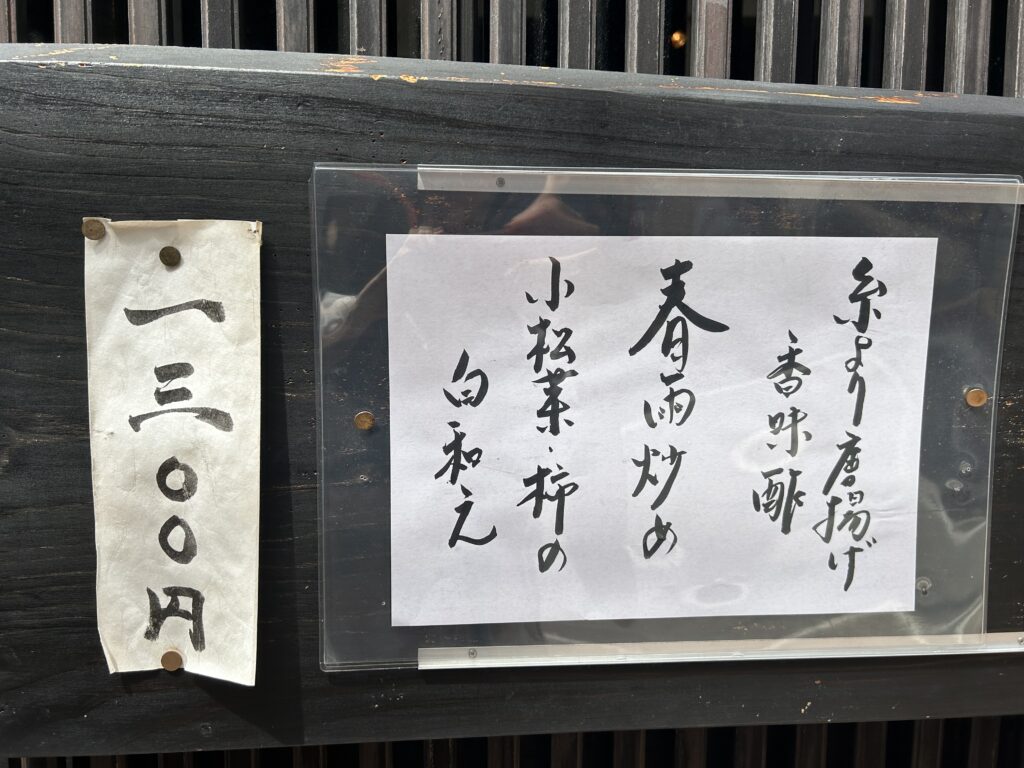 糸より唐揚げ
香味酢
春雨炒め
小松菜・柿の
白和え
一三〇〇円